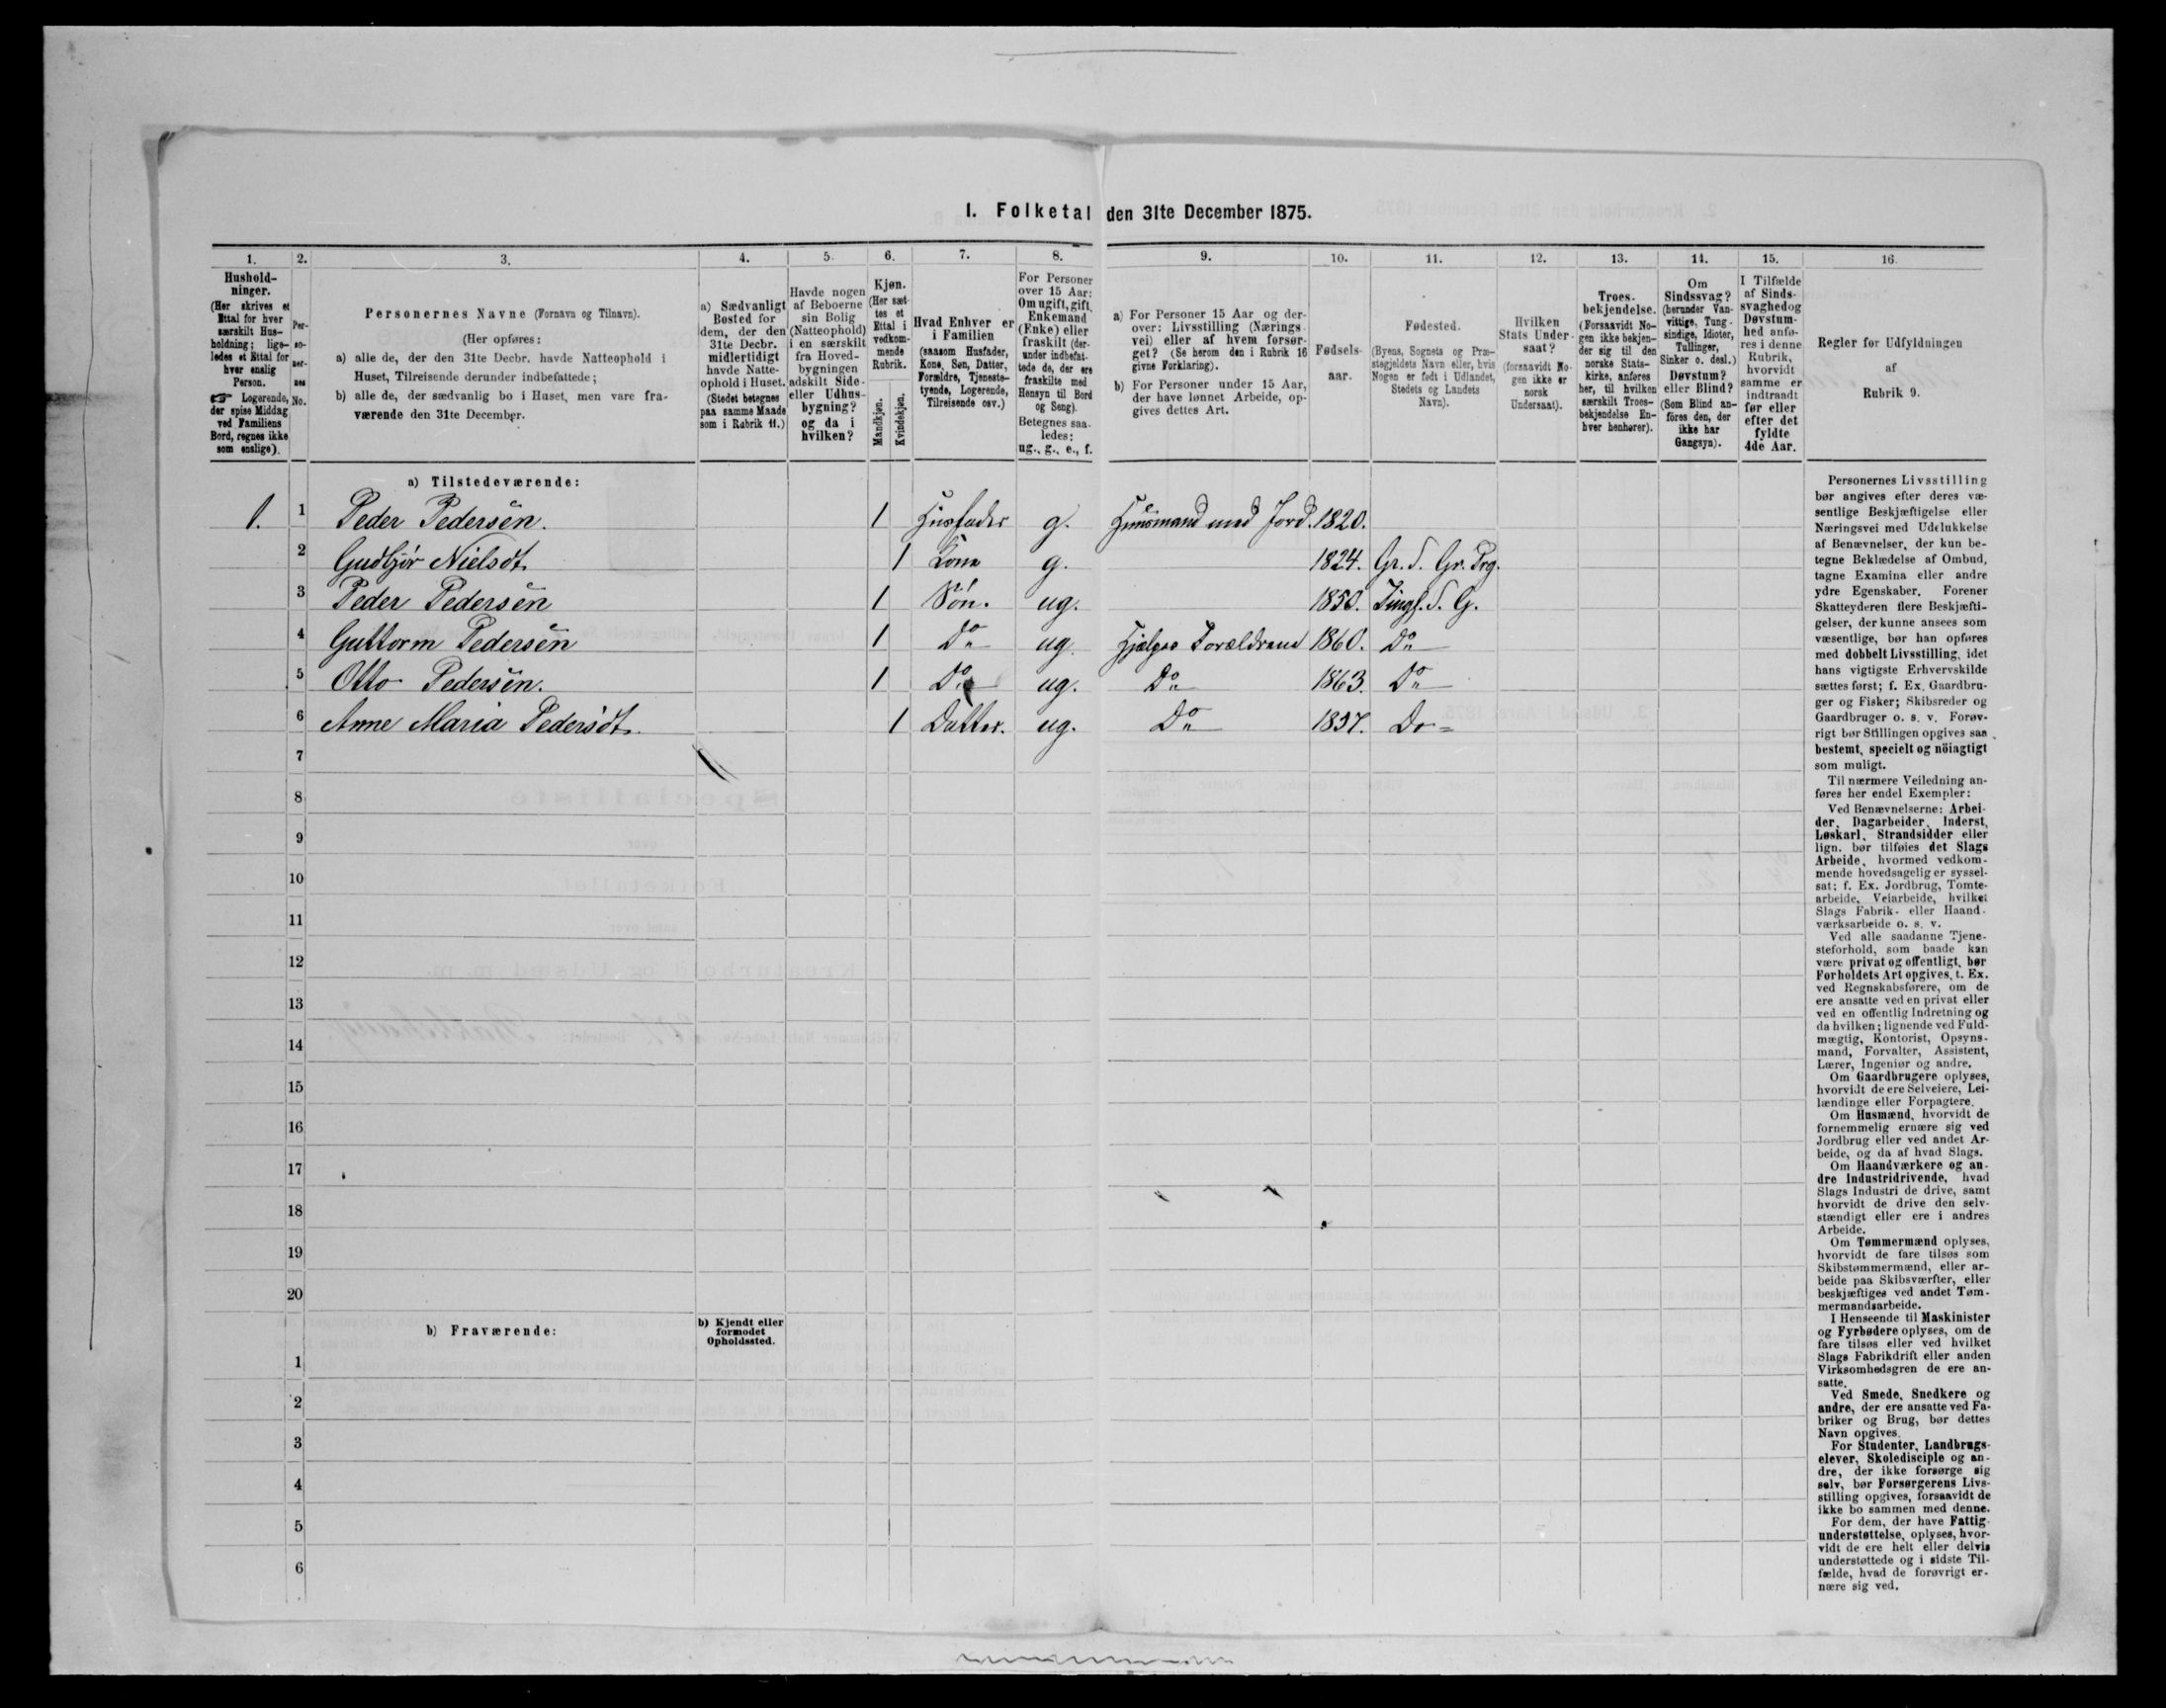 I. Folketal den 31te December 1875.
1. 2. 3. 4. 5. 6. 7. 8. 9. 10. 11. 12. 13. 14. 15. 16.
Hushold-
ninger.
(Her skrives et
Ettal for hver
særskilt Hus-
holdning; lige-
ledes et Ettal for
hver enslig
Person.
☞ Logerende,
der spise Middag
ved Familiens
Bord, regnes ikke
som enslige).
Per-
so-
ner-
nes
No.
Personernes Navne (Fornavn og Tilnavn).
(Her opføres:
a) alle de, der den 31te Decbr. havde Natteophold i
Huset, Tilreisende derunder indbefattede;
b) alle de, der sædvanlig bo i Huset, men vare fra-
værende den 31te December.
a) Sædvanligt
Bosted for
dem, der den
31te Decbr.
midlertidigt
havde Natte-
ophold i Huset.
(Stedet betegnes
paa samme Maade
som i Rubrik 11.)
Havde nogen
af Beboerne
sin Bolig
(Natteophold)
i en særskilt
fra Hoved-
bygningen
adskilt Side-
eller Udhus-
bygning?
og da i
hvilken?
Kjøn.
(Her sæt-
tes et
Ettal i
vedkom-
mende
Rubrik.
Mandkjøn.
Kvindekjøn.
Hvad Enhver er
i Familien
(saasom Husfader,
Kone, Søn, Datter,
Forældre, Tjeneste-
tyende, Logerende,
Tilreisende osv.)
For Personer
over 15 Aar:
Om ugift, gift,
Enkemand
(Enke) eller
fraskilt (der-
under indbefat-
tede de, der ere
fraskilte med
Hensyn til Bord
og Seng).
Betegnes saa-
ledes:
ug., g., e., f.
a) For Personer 15 Aar og der-
over: Livsstilling (Nærings-
vei) eller af hvem forsør-
get? (Se herom den i Rubrik 16
givne Forklaring).
b) For Personer under 15 Aar,
der have lønnet Arbeide, op-
gives dettes Art.
Fødsels-
aar.
Fødested.
(Byens, Sognets og Præ-
stegjeldets Navn eller, hvis
Nogen er født i Udlandet,
Stedets og Landets
Navn).
Hvilken
Stats Under-
saat?
(forsaavidt No-
gen ikke er
norsk
Undersaat).
Troes-
bekjendelse.
(Forsaavidt No-
gen ikke bekjen-
der sig til den
norske Stats-
kirke, anføres
her, til hvilken
særskilt Troes-
bekjendelse En-
hver henhører).
Om
Sindssvag?
(herunder Van-
vittige, Tung-
sindige, Idioter,
Tullinger,
Sinker o. desl.)
Døvstum?
eller Blind?
(Som Blind an-
føres den, der
ikke har
Gangsyn).
I Tilfælde
af Sinds-
svaghed og
Døvstum-
hed anfø-
res i denne
Rubrik,
hvorvidt
samme er
indtraadt
før eller
efter det
fyldte
4de Aar.
Regler for Udfyldningen
af
Rubrik 9.
a) Tilstedeværende:
1. 1 Peder Pedersen. 1 Husfader g. Huusmand med Jord. 1820.
2 Gudbjør Nielsdt. 1 Kone g. 1824. Gr. S. Gr. Prg.
3 Peder Pedersen 1 Søn. ug. 1850. Tingl. S. G.
4 Guttorm Pedersen 1 Do ug. Hjælper Forældrene 1860. Do
5 Otto Pedersen. 1 Do ug. Do 1863. Do
6 Anne Maria Pedersdt. 1 Datter. ug. Do 1857. Do
7
8
9
10
11
12
13
14
15
16
17
18
19
20
b) Fraværende:
b) Kjendt eller
formodet
Opholdssted.
1
2
3
4
5
6
Personernes Livsstilling
bør angives efter deres væ-
sentlige Beskjæftigelse eller
Næringsvei med Udelukkelse
af Benævnelser, der kun be-
tegne Beklædelse af Ombud,
tagne Examina eller andre
ydre Egenskaber. Forener
Skatteyderen flere Beskjæfti-
gelser, der kunne ansees som
væsentlige, bør han opføres
med dobbelt Livsstilling, idet
hans vigtigste Erhvervskilde
sættes først; f. Ex. Gaardbru-
ger og Fisker; Skibsreder og
Gaardbruger o. s. v. Forøv-
rigt bør Stillingen opgives saa
bestemt, specielt og nöiagtigt
som muligt.
Til nærmere Veiledning an-
føres her endel Exempler:
Ved Benævnelserne: Arbei-
der, Dagarbeider, Inderst,
Løskarl, Strandsidder eller
lign. bør tilføies det Slags
Arbeide, hvormed vedkom-
mende hovedsagelig er syssel-
sat; f. Ex. Jordbrug, Tomte-
arbeide, Veiarbeide, hvilket
Slags Fabrik- eller Haand-
værksarbeide o. s. v.
Ved alle saadanne Tjene-
steforhold, som baade kan
være privat og offentligt, bør
Forholdets Art opgives, t. Ex.
ved Regnskabsførere, om de
ere ansatte ved en privat eller
ved en offentlig Indretning og
da hvilken; lignende ved Fuld-
mægtig, Kontorist, Opsyns-
mand, Forvalter, Assistent,
Lærer, Ingeniør og andre.
Om Gaardbrugere oplyses,
hvorvidt de ere Selveiere, Lei-
lændinge eller Forpagtere.
Om Husmænd, hvorvidt de
fornemmelig ernære sig ved
Jordbrug eller ved andet Ar-
beide, og da af hvad Slags.
Om Haandværkere og an-
dre Industridrivende, hvad
Slags Industri de drive, samt
hvorvidt de drive den selv-
stændigt eller ere i andres
Arbeide.
Om Tømmermænd oplyses,
hvorvidt de fare tilsøs som
Skibstømmermænd, eller ar-
beide paa Skibsværfter, eller
beskjæftiges ved andet Tøm-
mermandsarbeide.
I Henseende til Maskinister
og Fyrbødere oplyses, om de
fare tilsøs eller ved hvilket
Slags Fabrikdrift eller anden
Virksomhedsgren de ere an-
satte.
Ved Smede, Snedkere og
andre, der ere ansatte ved Fa-
briker og Brug, bør dettes
Navn opgives.
For Studenter, Landbrugs-
elever, Skoledisciple og an-
dre, der ikke forsørge sig
selv, bør Forsørgerens Livs-
stilling opgives, forsaavidt de
ikke bo sammen med denne.
For dem, der have Fattig-
understøttelse, oplyses, hvor-
vidt de ere helt eller delvis
understøttede og i sidste Til-
fælde, hvad de forøvrigt er-
nære sig ved.